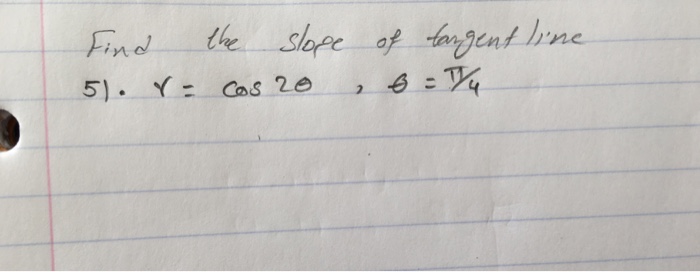 Find the slope of tangent line
51. r = cos 2θ , θ = π/4